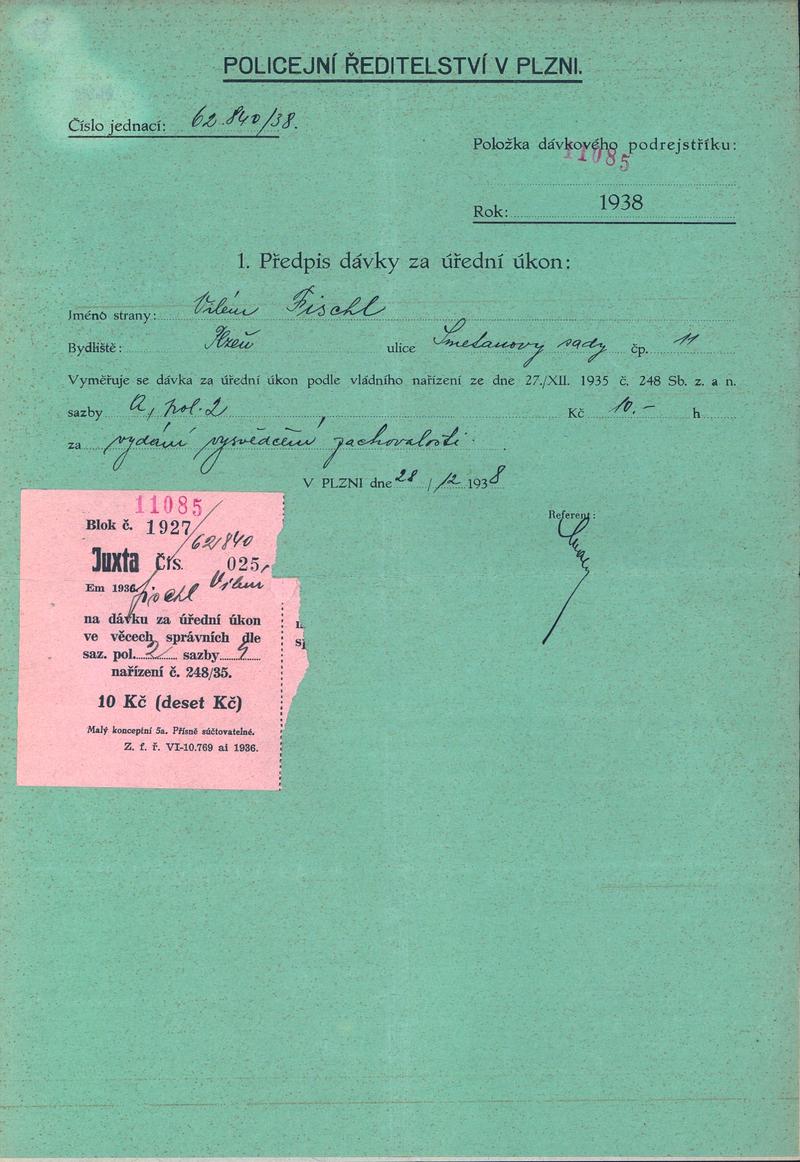 POLICEJNÍ ŘEDITELSTVÍ V PLZNI.
Číslo jednací: 62.840/38.
Položka dávkového podrejstříku:
11085
Rok: 1938
1. Předpis dávky za úřední úkon:
Jméno strany: Vilém Fischl
Bydliště: Plzeň ulice Smetanovy sady čp. 11
Vyměřuje se dávka za úřední úkon podle vládního nařízení ze dne 27./XII. 1935 č. 248 Sb. z. a n.
sazby A, pol. 2 Kč 10.- h
za vydání vysvědčení zachovalosti.
V PLZNI dne 28 / 12 1938
Referent:
11085
Blok č. 1927
62840
Juxta čís. 025,
Em 1936
Fischl Vilém
na dávku za úřední úkon
ve věcech správních dle
saz. pol. 2 sazby
nařízení č. 248/35.
10 Kč (deset Kč)
Malý konceptní 5a. Přísně súčtovatelné.
Z. f. ř. VI-10.769 ai 1936.